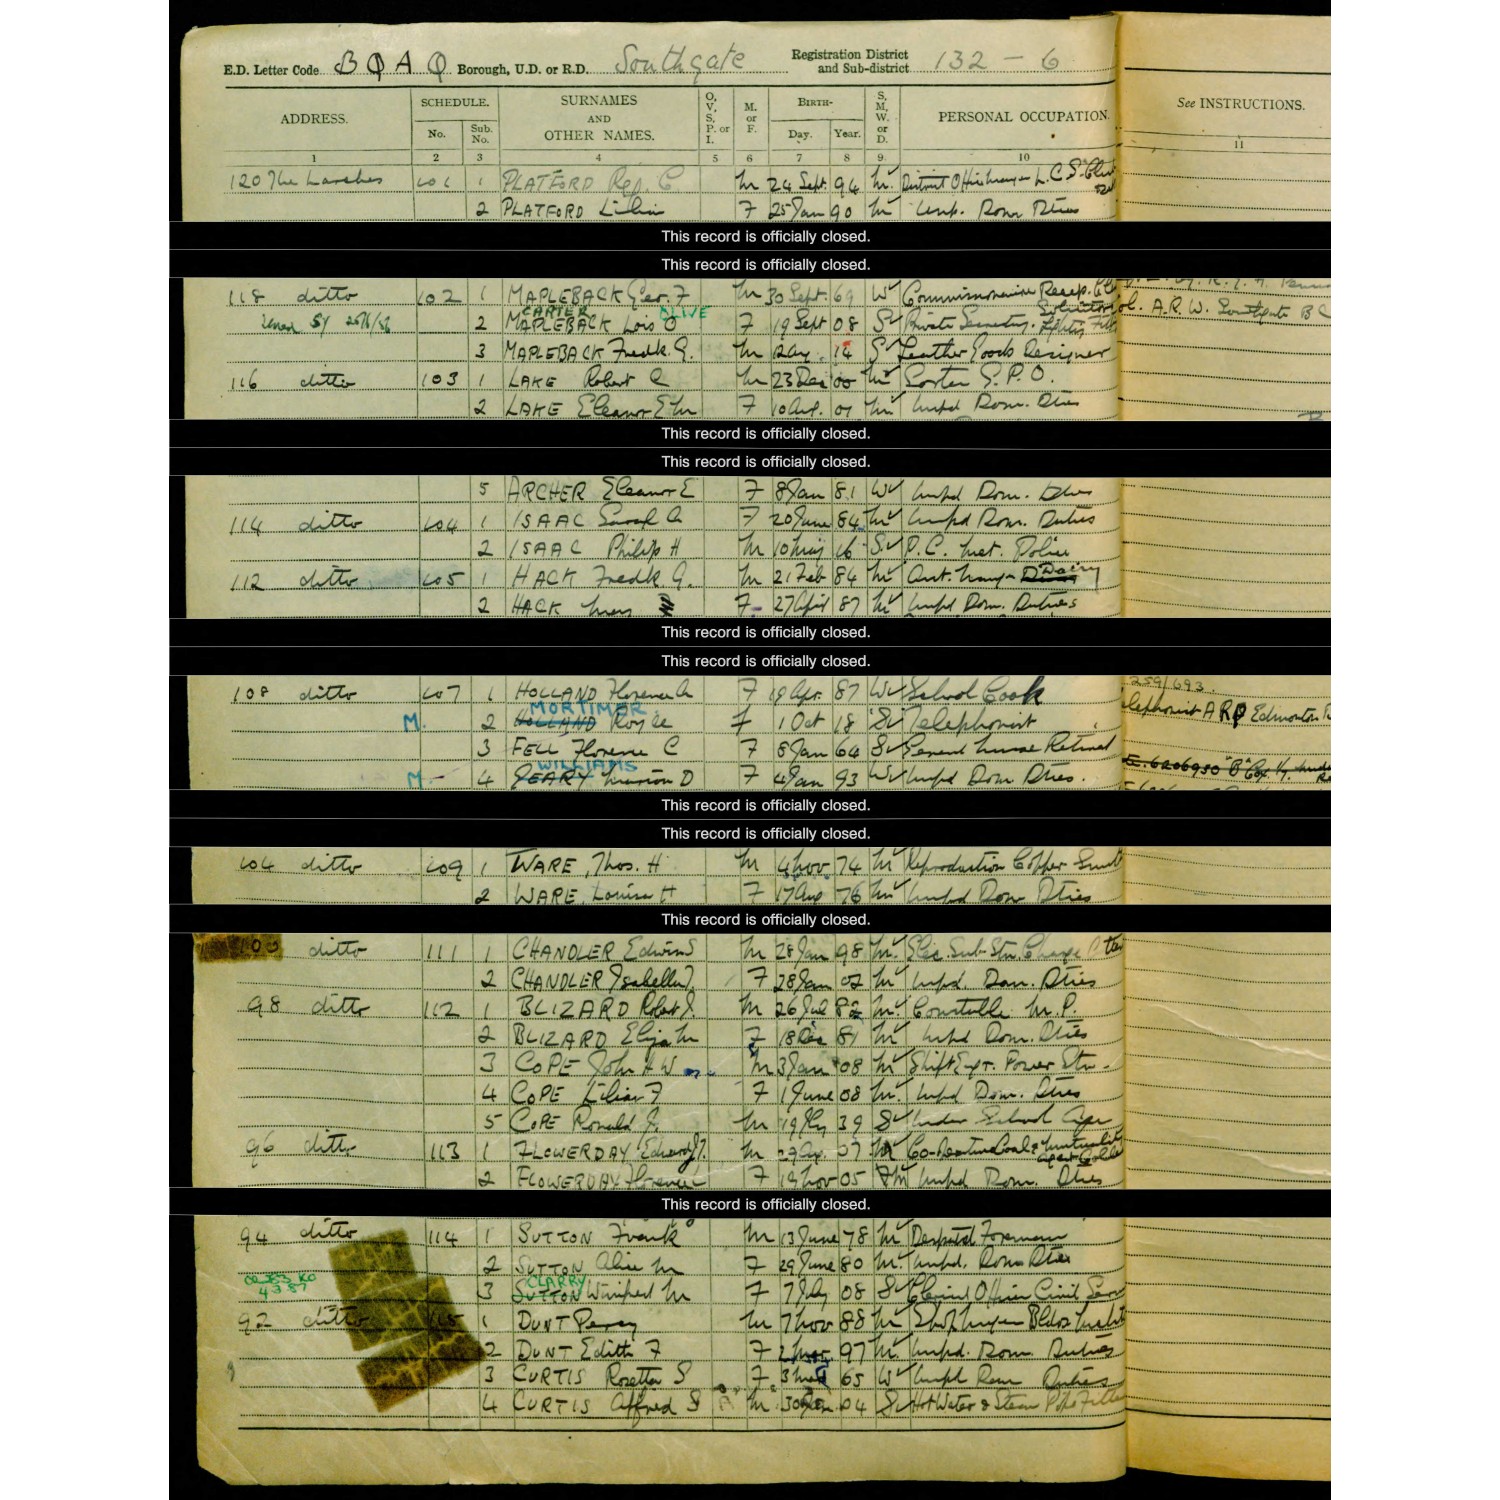 E.D. Letter Code BQAQ Borough, U.D. or R.D. Southgate Registration District and Sub-district 132 - 6
ADDRESS. SCHEDULE. No. Sub. No. SURNAMES AND OTHER NAMES. O, V, S, P. or I. M. or F. BIRTH- Day. Year. S, M, W. or D. PERSONAL OCCUPATION. See INSTRUCTIONS.
1 2 3 4 5 6 7 8 9 10 11
120 The Larches 101 1 PLATFORD Reg. C M 24 Sept. 94 M L.C.S.
2 PLATFORD Lilian F 25 Jan 90 M Unp. Dom Dties
This record is officially closed.
This record is officially closed.
118 ditto 102 1 MAPLEBACK Geo. F M 30 Sept. 69 W Commissionaire Recep.
CARTER OLIVE
2 MAPLEBACK Lois O F 19 Sept 08 S Private Secretary. Solicitor A.R.W. Southgate B C
3 MAPLEBACK Fredk. G. M 14 S Leather Goods Designer
116 ditto 103 1 LAKE Robert M 23 Dec 00 M Sorter G.P.O.
2 LAKE Eleanor E M F 10 01 M Unpd Dom. Dties
This record is officially closed.
This record is officially closed.
5 ARCHER Eleanor E F 8 Jan 81 W Unpd Dom. Dties
114 ditto 104 1 ISAAC Sarah A F 20 June 84 M Unpd Dom. Duties
2 ISAAC Philip H M 10 May 16 S P.C. Met. Police
112 ditto 105 1 HACK Fredk. G. M 21 Feb 84 M Dairy
2 HACK Mary F 27 April 87 M Unpd Dom. Duties
This record is officially closed.
This record is officially closed.
108 ditto 107 1 HOLLAND Florence A F 19 Apr. 87 W School Cook 259/693.
MORTIMER
M. 2 HOLLAND F 1 Oct 18 S Telephonist Telephonist ARP Edmonton
3 FELL Florence C F 8 Jan 64 S General Nurse Retired
WILLIAMS
M 4 GEARY Marion D F 4 Jan 93 W Unpd Dom Dties.
This record is officially closed.
This record is officially closed.
104 ditto 109 1 WARE, Thos. H M 4 Nov 74 M Reproduction Copper
2 WARE, Louisa H F 17 Aug 76 M Unpd Dom Dties
This record is officially closed.
100 ditto 111 1 CHANDLER Edwin S M 28 Jan 98 M Elec. Sub-Stn. Charge
2 CHANDLER Isabella F 28 Jan 02 M Unpd. Dom. Dties
98 ditto 112 1 BLIZARD Robt J. M 26 Jul 82 M Constable M.P.
2 BLIZARD Eliza M F 18 Dec 81 M Unpd Dom. Dties
3 COPE John H W M 3 Jan 08 M Shift Engr. Power Stn.
4 COPE Lilian F F 1 June 08 M Unpd Dom. Dties
5 COPE Ronald J. M 19 39 S Under School Age
96 ditto 113 1 FLOWERDAY Edward J. M 29 Aug. 07 M Co-operative
2 FLOWERDAY Florence F 19 Nov 05 M Unpd Dom. Dties
This record is officially closed.
94 ditto 114 1 SUTTON Frank M 13 June 78 M Despatch Foreman
2 SUTTON Alice M F 29 June 80 M Unpd. Dom Dties
CLARRY
3 SUTTON Winifred M F 7 July 08 S Clerical Officer Civil
92 ditto 115 1 DUNT Percy M 7 Nov 88 M
2 DUNT Edith F F 97 M Unpd. Dom. Duties
3 CURTIS Rosetta S F 3 65 W Unpd Dom Duties
4 CURTIS Alfred S M 30 04 S Hot Water & Steam Pipe Fitter